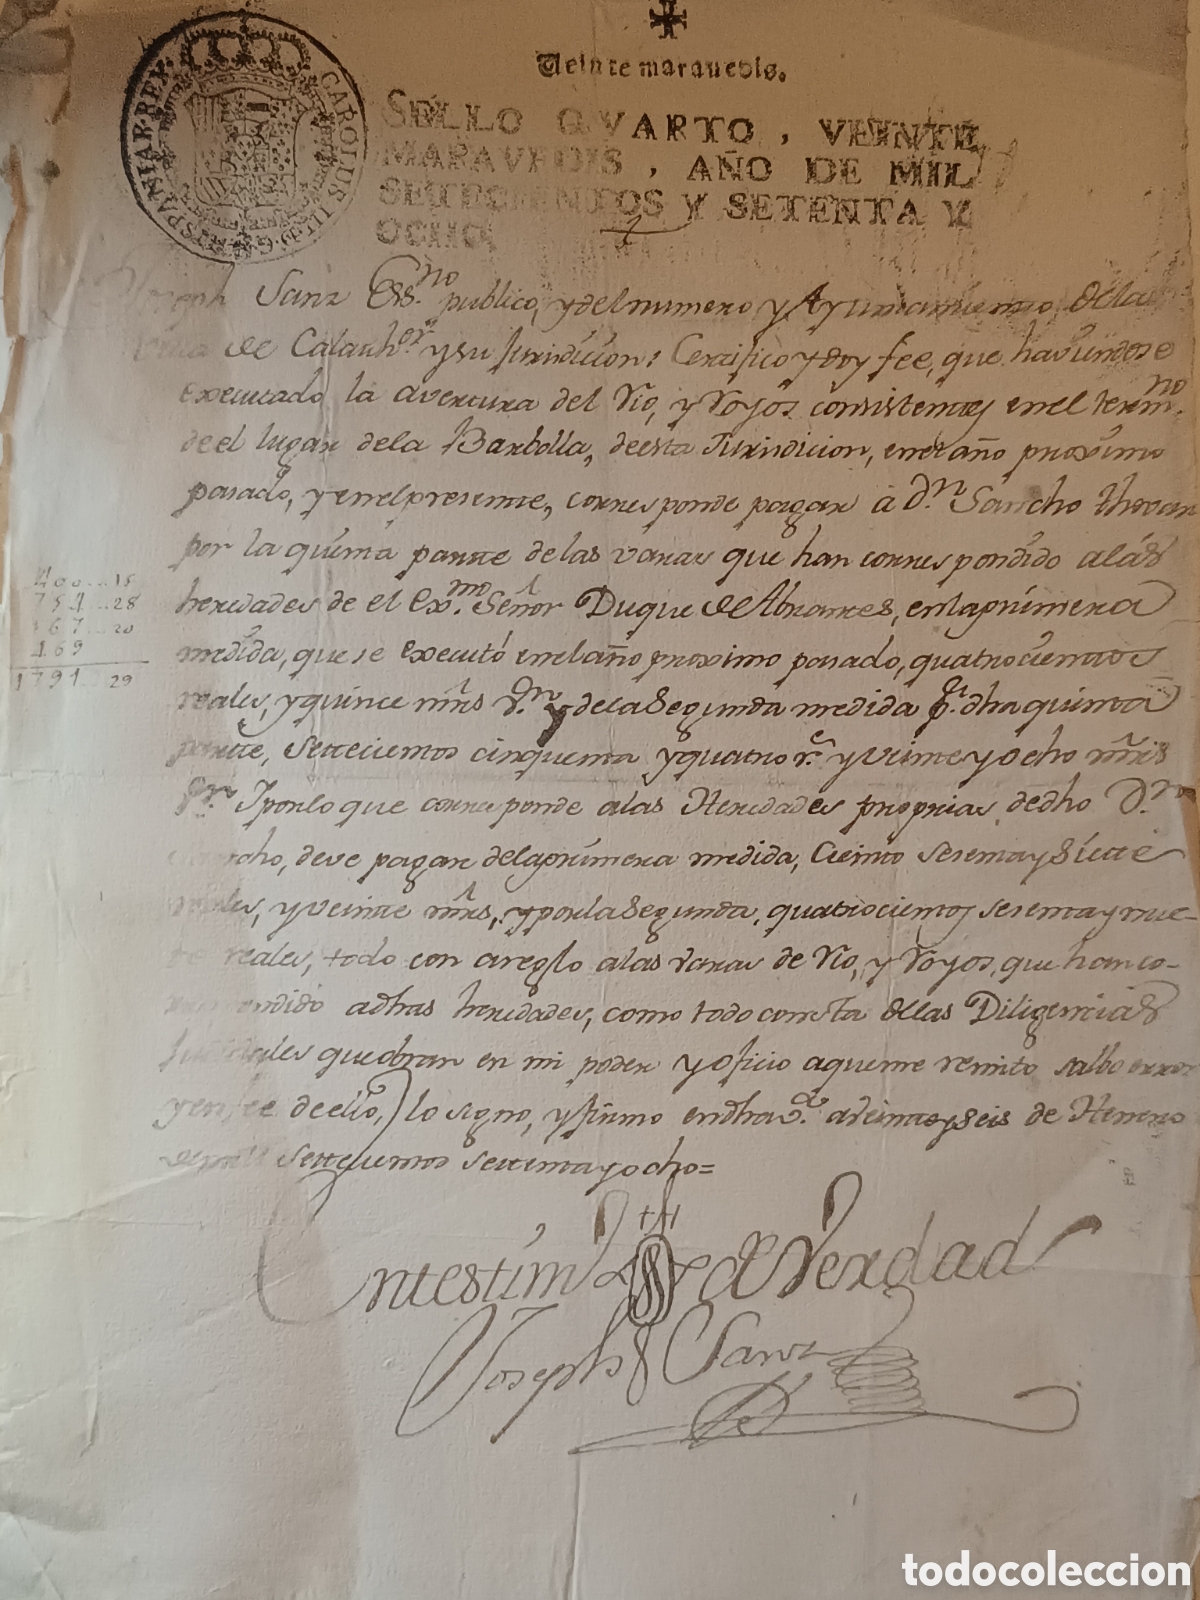 HISPANIAR·REX· CAROLUS III·D·G·
Veinte maravedis.
SELLO QVARTO, VEINTE
MARAVEDIS, AÑO DE MIL
SETECIENTOS Y SETENTA Y
OCHO.
Joseph Sanz Ess.no publico, y del numero y Ayuntamiento dela
Villa de Calatth.or y su Jurisdicion: Certifico y doy fee, que haviendose
executado la avertura del Rio, y Royos consistentes en el term.no
de el lugar dela Barbolla, de esta Jurisdicion, en el año proximo
pasado, y en el presente, corresponde pagar á D.n Sancho
por la quinta parte de las varas que han correspondido alás
heredades de el Ex.mo Señor Duque de Abrantes, en la primera
medida, que se executó en el año proximo pasado, quatrocientos
reales, y quince mrs v.n y de la Segunda medida p.r dha quinta
parte, Settecientos cinquenta y quatro r.s y veinte y ocho mrs
v.n Y por lo que corresponde a las Heredades proprias de dho D.n
Sancho, deve pagar de la primera medida, Ciento sesenta y siete
reales, y veinte mrs, y por la Segunda, quatrocientos sesenta y nue-
be reales, todo con areglo a las varas de Rio, y Royos, que han co-
rrespondido adhas heredades, como todo consta de las Diligencias
Judiciales que obran en mi poder y oficio a que me remito salbo error
y en fee de ello, lo signo, y firmo en dha V.a a veinte y seis de Henero
de mill Settecientos settenta y ocho=
400..15
754..28
167..20
469
1791..29
En testim de Verdad
Joseph Sanz
todocoleccion